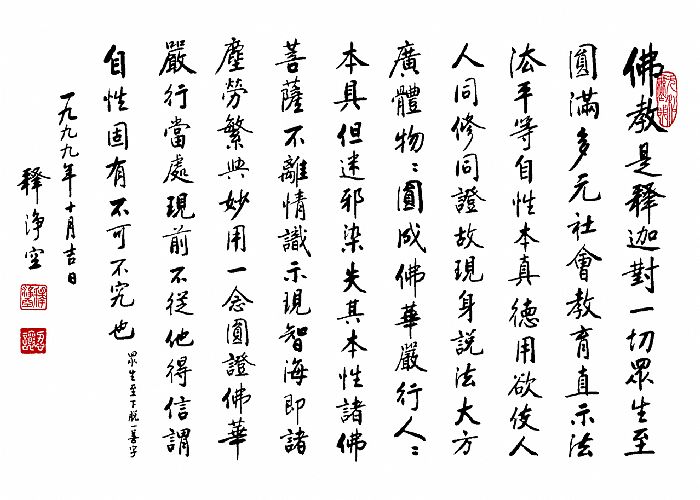 佛教是釋迦對一切眾生至
圓滿多元社會教育直示法
法平等自性本真德用欲使人
人同修同證故現身說法大方
廣體物〻圓成佛華嚴行人〻
本具但迷邪染失其本性諸佛
菩薩不離情識示現智海即諸
塵勞繁興妙用一念圓證佛華
嚴行當處現前不從他得信謂
自性固有不可不究也
眾生至下脫一善字
一九九九年十月吉日
釋淨空